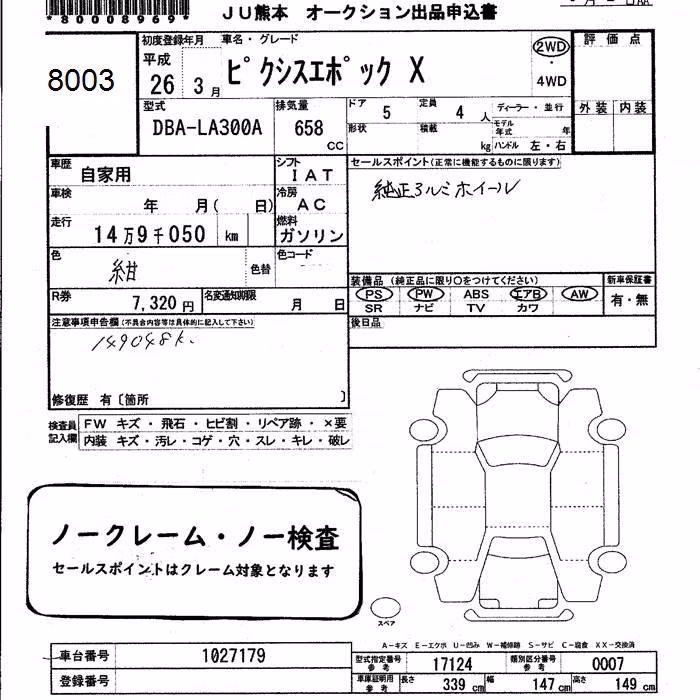 *80008969*
JU熊本 オークション出品申込書
8003
初度登録年月
平成
26 3月
車名・グレード
ピクシスエポック X
2WD
・
4WD
評価点
外装 内装
型式
DBA-LA300A
排気量
658
CC
ドア 5
定員 4 人
ディーラー・並行
形状
積載 kg
モデル年式 年
ハンドル 左・右
車歴 自家用
シフト
IAT
セールスポイント(正常に機能するものに限ります)
純正アルミホイール
車検 年 月( 日)
冷房
AC
走行
14万9千050 km
燃料
ガソリン
色 紺 色替
色コード
装備品(純正品に限り○をつけてください)
PS PW ABS エアB AW
SR ナビ TV カワ
新車保証書
有・無
R券 7,320円
名変通知期限 月 日
後日品
注意事項申告欄(不具合内容等は具体的に記入して下さい)
149048k.
修復歴 有〔箇所 〕
検査員記入欄
FW キズ・飛石・ヒビ割・リペア跡・×要
内装 キズ・汚レ・コゲ・穴・スレ・キレ・破レ
ノークレーム・ノー検査
セールスポイントはクレーム対象となります
スペア
A-キズ E-エクボ U-凹み W-補修跡 S-サビ C-腐食 XX-交換済
車台番号 1027179
登録番号
型式指定番号参考 17124
類別区分番号参考 0007
車庫証明用参考 長さ 339 cm 幅 147 cm 高さ 149 cm